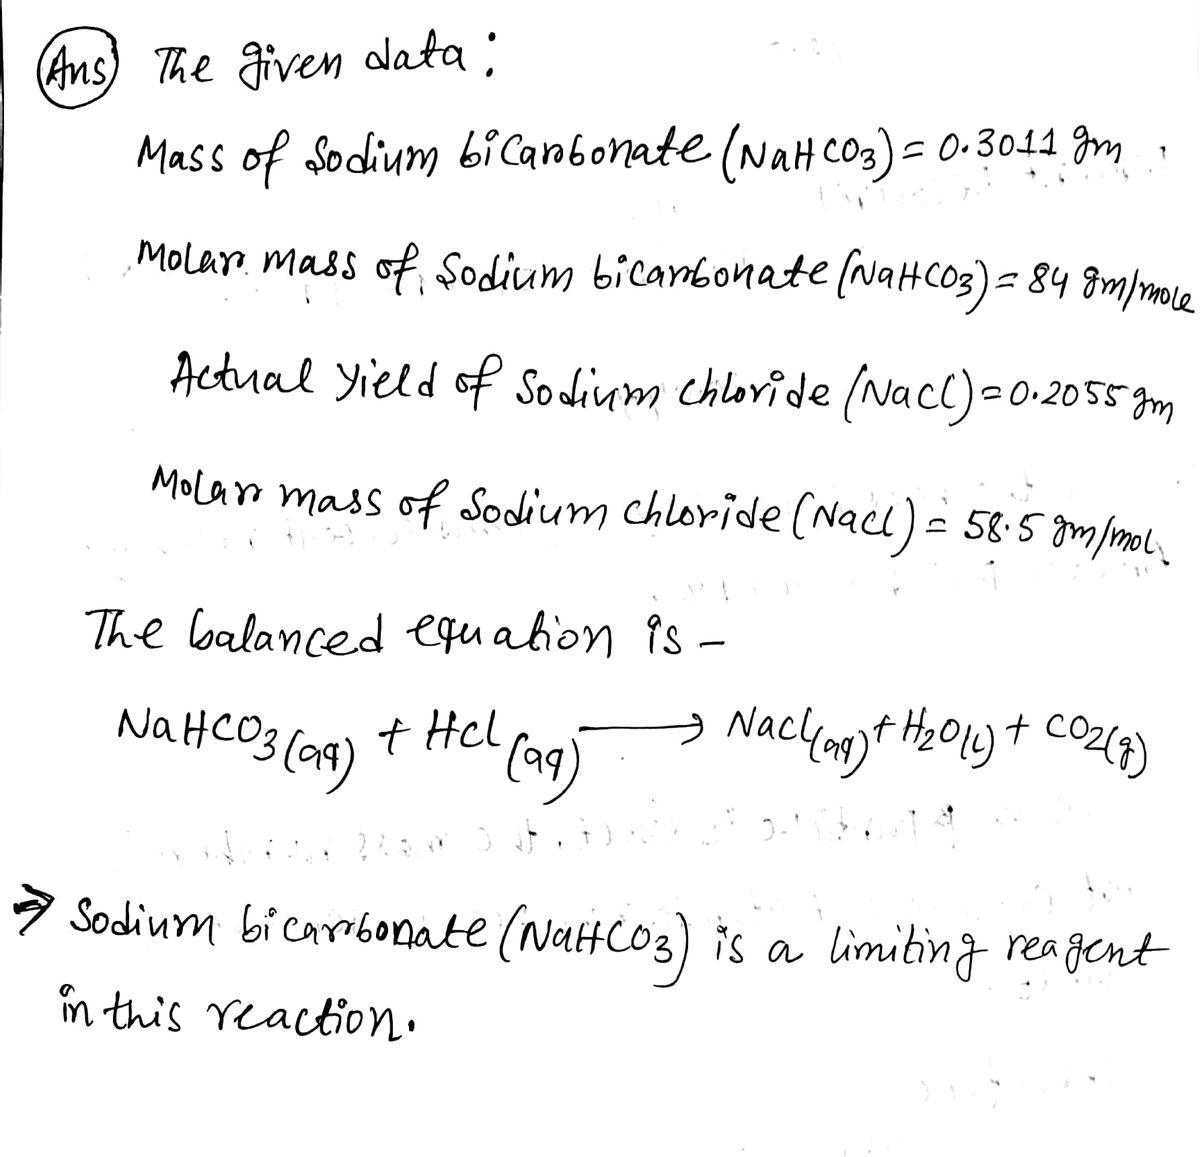 Ans The given data:
Mass of Sodium bicarbonate (NaHCO3) = 0.3011 gm
Molar mass of Sodium bicarbonate (NaHCO3) = 84 gm/mole
Actual yield of Sodium chloride (NaCl) = 0.2055 gm
Molar mass of Sodium chloride (NaCl) = 58.5 gm/mol
The balanced equation is -
NaHCO3(aq) + HCl(aq) ⟶ NaCl(aq) + H2O(l) + CO2(g)
⇒ Sodium bicarbonate (NaHCO3) is a limiting reagent
in this reaction.